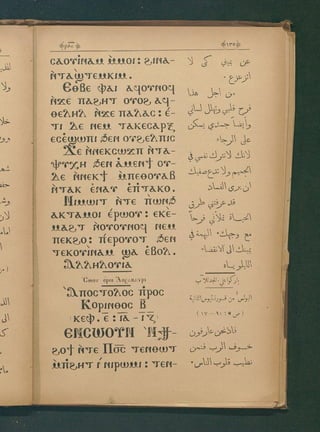 ⲥⲁⲟⲩⲓⲛⲁⲙ ⲙ̀ⲙⲟⲓ : ϩⲓⲛⲁ-
ⲛ̀ⲧⲁϣ̀ⲧⲉⲙⲕⲓⲙ .
Ⲉⲑⲃⲉ ⲫⲁⲓ ⲁϥⲟⲩⲛⲟϥ
ⲛ̀ϫⲉ ⲡⲁϩⲏⲧ ⲟⲩⲟϩ ⲁϥ-
ⲑⲉⲗⲏⲗ ⲛ̀ϫⲉ ⲡⲁⲗⲁⲥ : ⲉ̀-
ⲧⲓ ⲇⲉ ⲛⲉⲙ ⲧⲁⲕⲉⲥⲁⲣⲝ
ⲉⲥⲉ̀ϣⲱⲡⲓ ϧⲉⲛ ⲟⲩϩⲉⲗⲡⲓⲥ
Ϫⲉ ⲛ̀ⲛⲉⲕⲥⲱϫⲡ ⲛ̀ⲧⲁ-
ⲯⲩⲭⲏ ϧⲉⲛ ⲁ̀ⲙⲉⲛϯ ⲟⲩ-
ⲇⲉ ⲛ̀ⲛⲉⲕϯ ⲙ̀ⲡⲉⲑⲟⲩⲁⲃ
ⲛ̀ⲧⲁⲕ ⲉ̀ⲛⲁⲩ ⲉ̀ⲡⲧⲁⲕⲟ .
Ⲛⲓⲙⲱⲓⲧ ⲛ̀ⲧⲉ ⲡⲱⲛϧ
ⲁⲕⲧⲁⲙⲟⲓ ⲉ̀ⲣⲱⲟⲩ : ⲉⲕⲉ̀-
ⲙⲁϩⲧ ⲛ̀ⲟⲩⲟⲩⲛⲟϥ ⲛⲉⲙ
ⲡⲉⲕϩⲟ : ⲡⲉⲣⲟⲩⲟⲧ ϧⲉⲛ
ⲧⲉⲕⲟⲩⲓⲛⲁⲙ ϣⲁ ⲉ̀ⲃⲟⲗ .
Ⲁⲗⲗⲏⲗⲟⲩⲓⲁ
Ⲁⲡⲟⲥⲧⲟⲗⲟⲥ ⲡ̀ⲣⲟⲥ
Ⲕⲟⲣⲓⲛⲑⲟⲥ Ⲃ
(ⲕⲉⲫ . ⲉ̅ : ⲓ̅ⲁ̅ - ⲓ̅ⲍ̅)
ⲈⲚⲤⲰⲞⲨⲚ Ⲛ̀ϯ-
ϩⲟϯ ⲛ̀ⲧⲉ Ⲡⲟ̅ⲥ̅ ⲧⲉⲛⲑⲱⲧ
ⲙ̀ⲡ̀ϩⲏⲧ ⲛ̀ⲛⲓⲣⲱⲙⲓ : ⲧⲉⲛ-
عن يميني كى لا
اتزعزع .
من اجل هذا
فرح قلبي وتهلل لساني
وايضاً جسدي يسكن
على الرجاء
لانك لا تترك نفسي في
الجحيم ولا تدع صفيك
ان يرى الفساد
قد عرفتني طرق
الحيــاة تملأني فرحاً
مع وجهك . البهجة في
يمينك الى الانقضاء .
الليلويــاه
فاذ نحن عارفون
خــوف الرب فنحن
نطيب قلوب الناس .